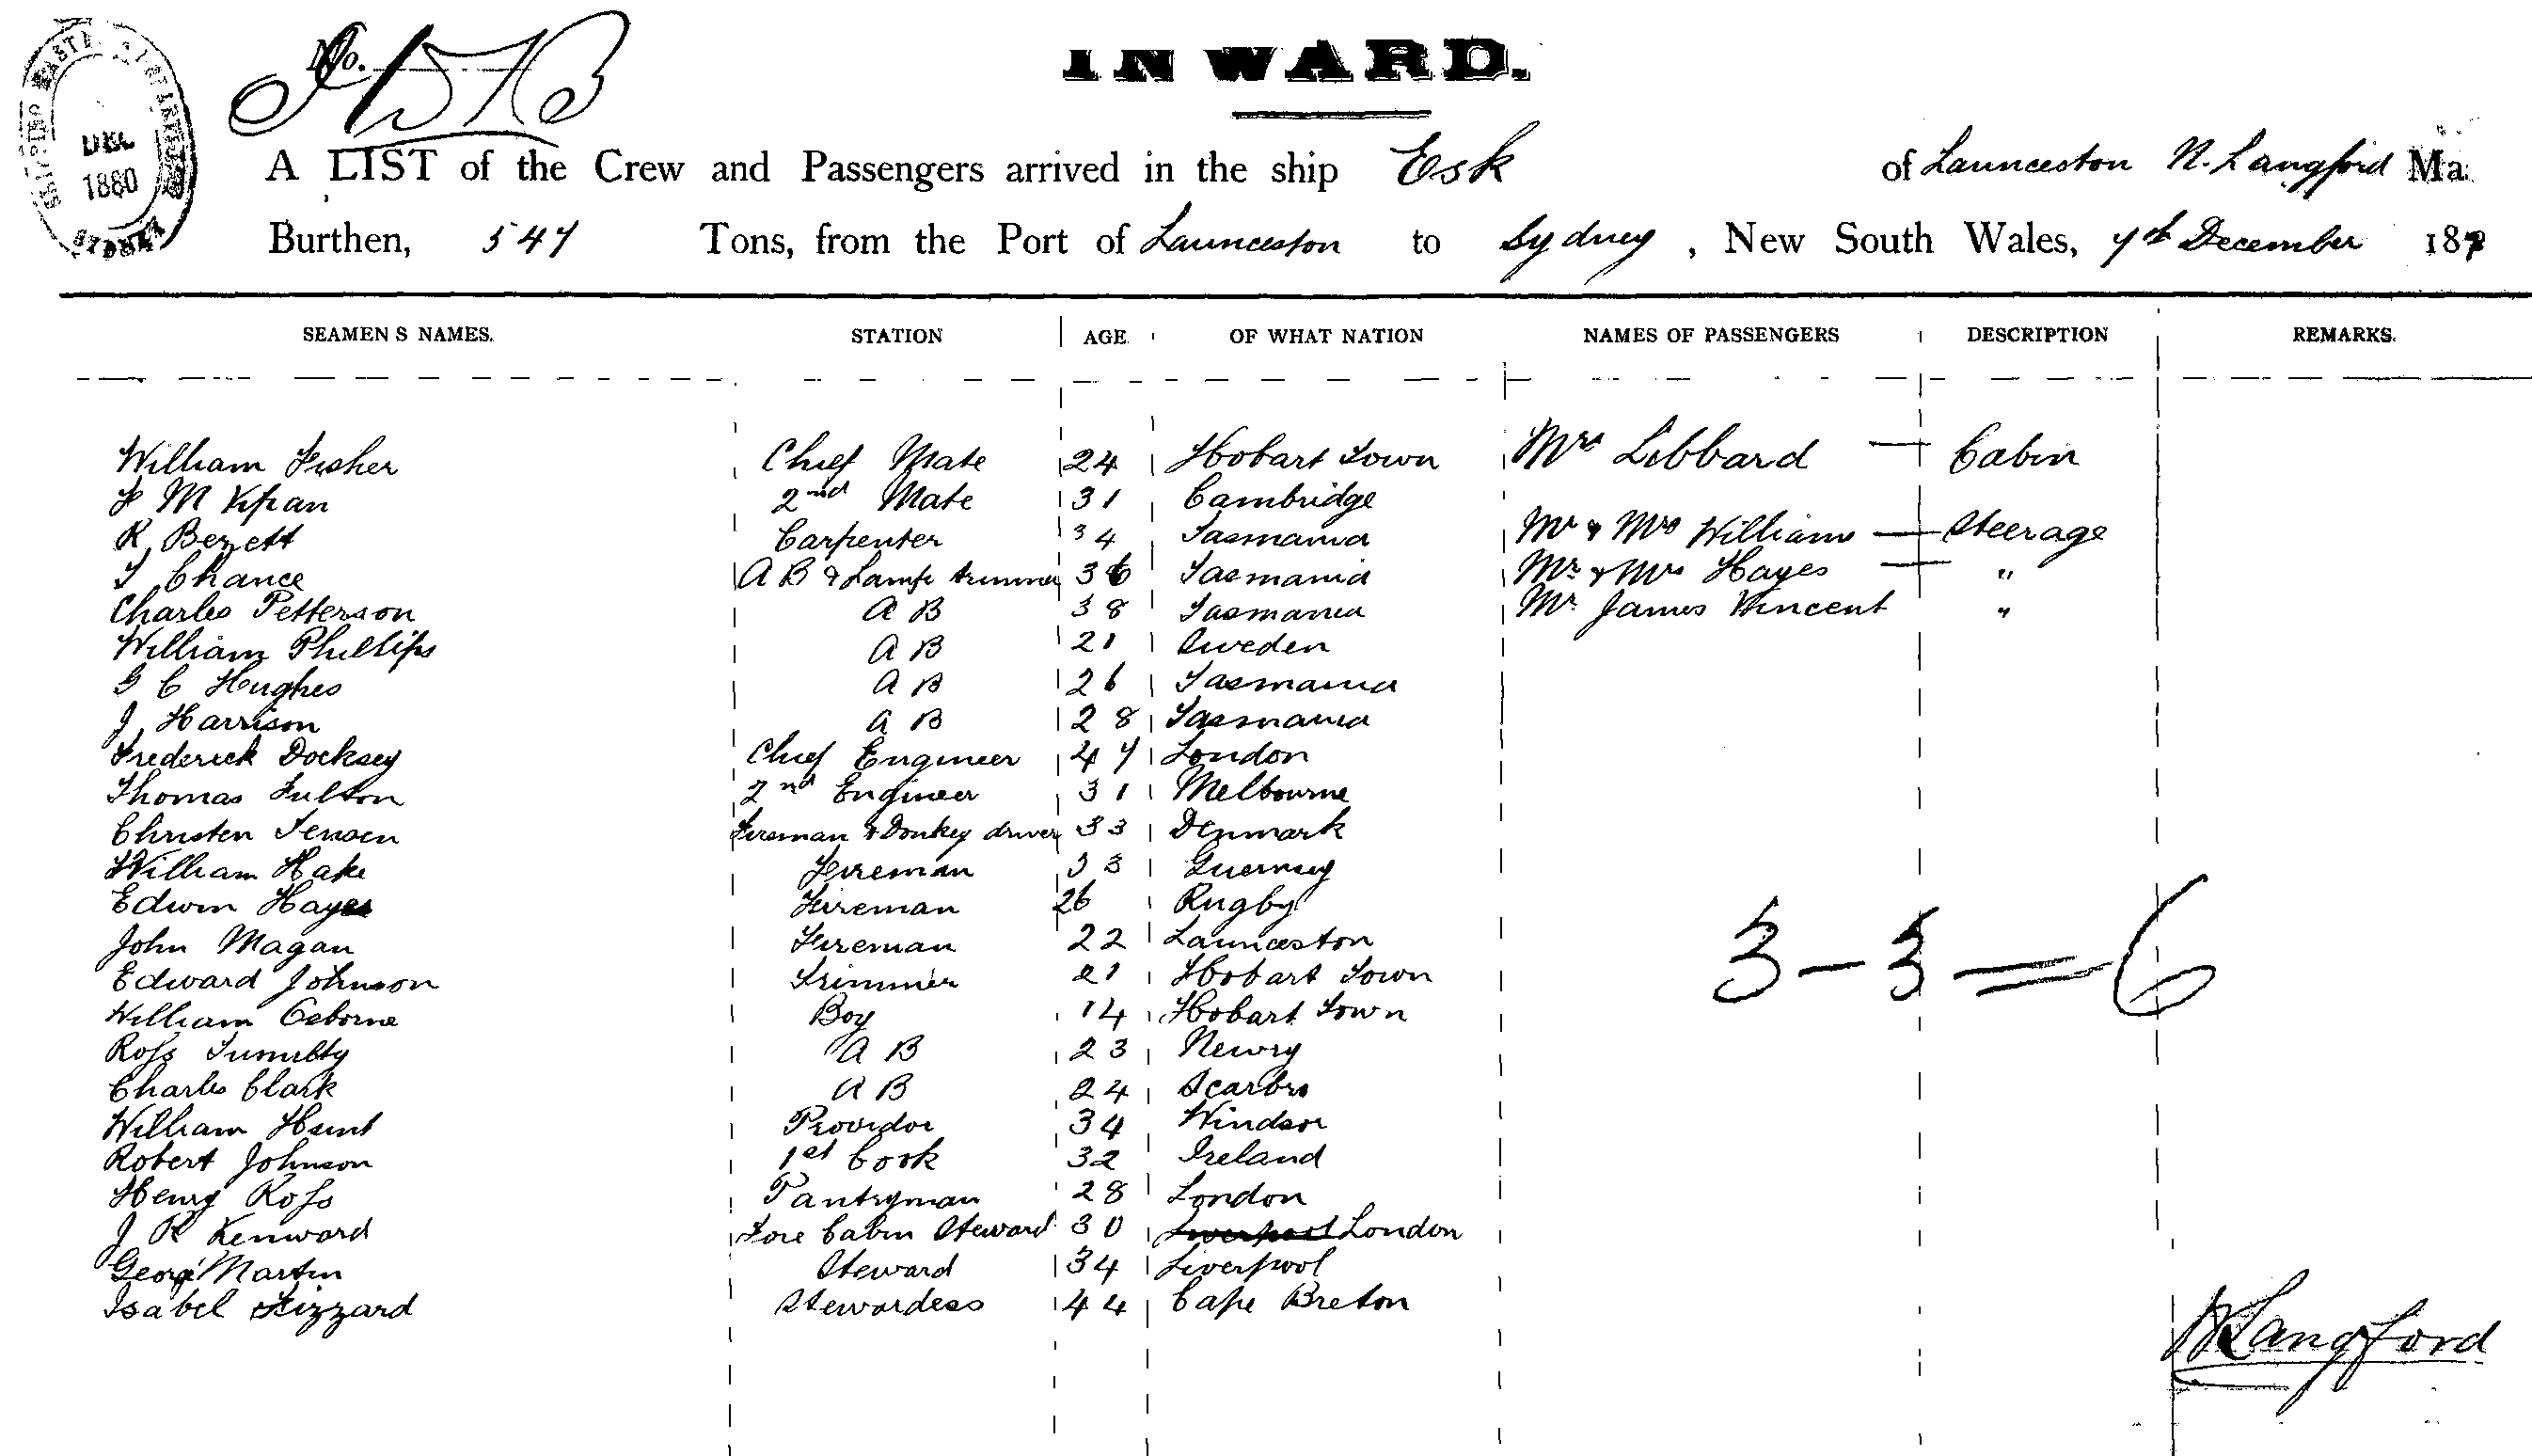 No.
INWARD.
DEC
1880
SYDNEY
A LIST of the Crew and Passengers arrived in the ship Esk of Launceston N. Langford Ma
Burthen, 547 Tons, from the Port of Launceston to Sydney, New South Wales, 7th December 187
SEAMEN S NAMES. STATION AGE. OF WHAT NATION NAMES OF PASSENGERS DESCRIPTION REMARKS.
William Fisher Chief Mate 24 Hobart Town Mrs Libbard — Cabin
M 2nd Mate 31 Cambridge
R Bezett Carpenter 34 Tasmania Mr & Mrs Williams — Steerage
T Chance A B & Lamp trimmer 36 Tasmania Mr & Mrs Hayes — "
Charles Petterson A B 38 Tasmania Mr James Vincent "
William Phillips A B 21 Sweden
G C Hughes A B 26 Tasmania
J Harrison A B 28 Tasmania
Frederick Docksey Chief Engineer 47 London
Thomas Fulton 2nd Engineer 31 Melbourne
Christen Jensen Fireman & Donkey driver 33 Denmark
William Hake Fireman 33 Guernsey
Edwin Hayes Fireman 26 Rugby
John Magan Fireman 22 Launceston
Edward Johnson Trimmer 21 Hobart Town
William Osborne Boy 14 Hobart Town
Ross A B 23 Newry
Charles Clark A B 24 Scarbro
William Hunt Providor 34 Windsor
Robert Johnson 1st Cook 32 Ireland
Henry Ross Pantryman 28 London
J R Kenward Fore Cabin Steward 30 Liverpool London
George Martin Steward 34 Liverpool
Isabel Lizzard Stewardess 44 Cape Breton
3 — 3 = 6
N Langford